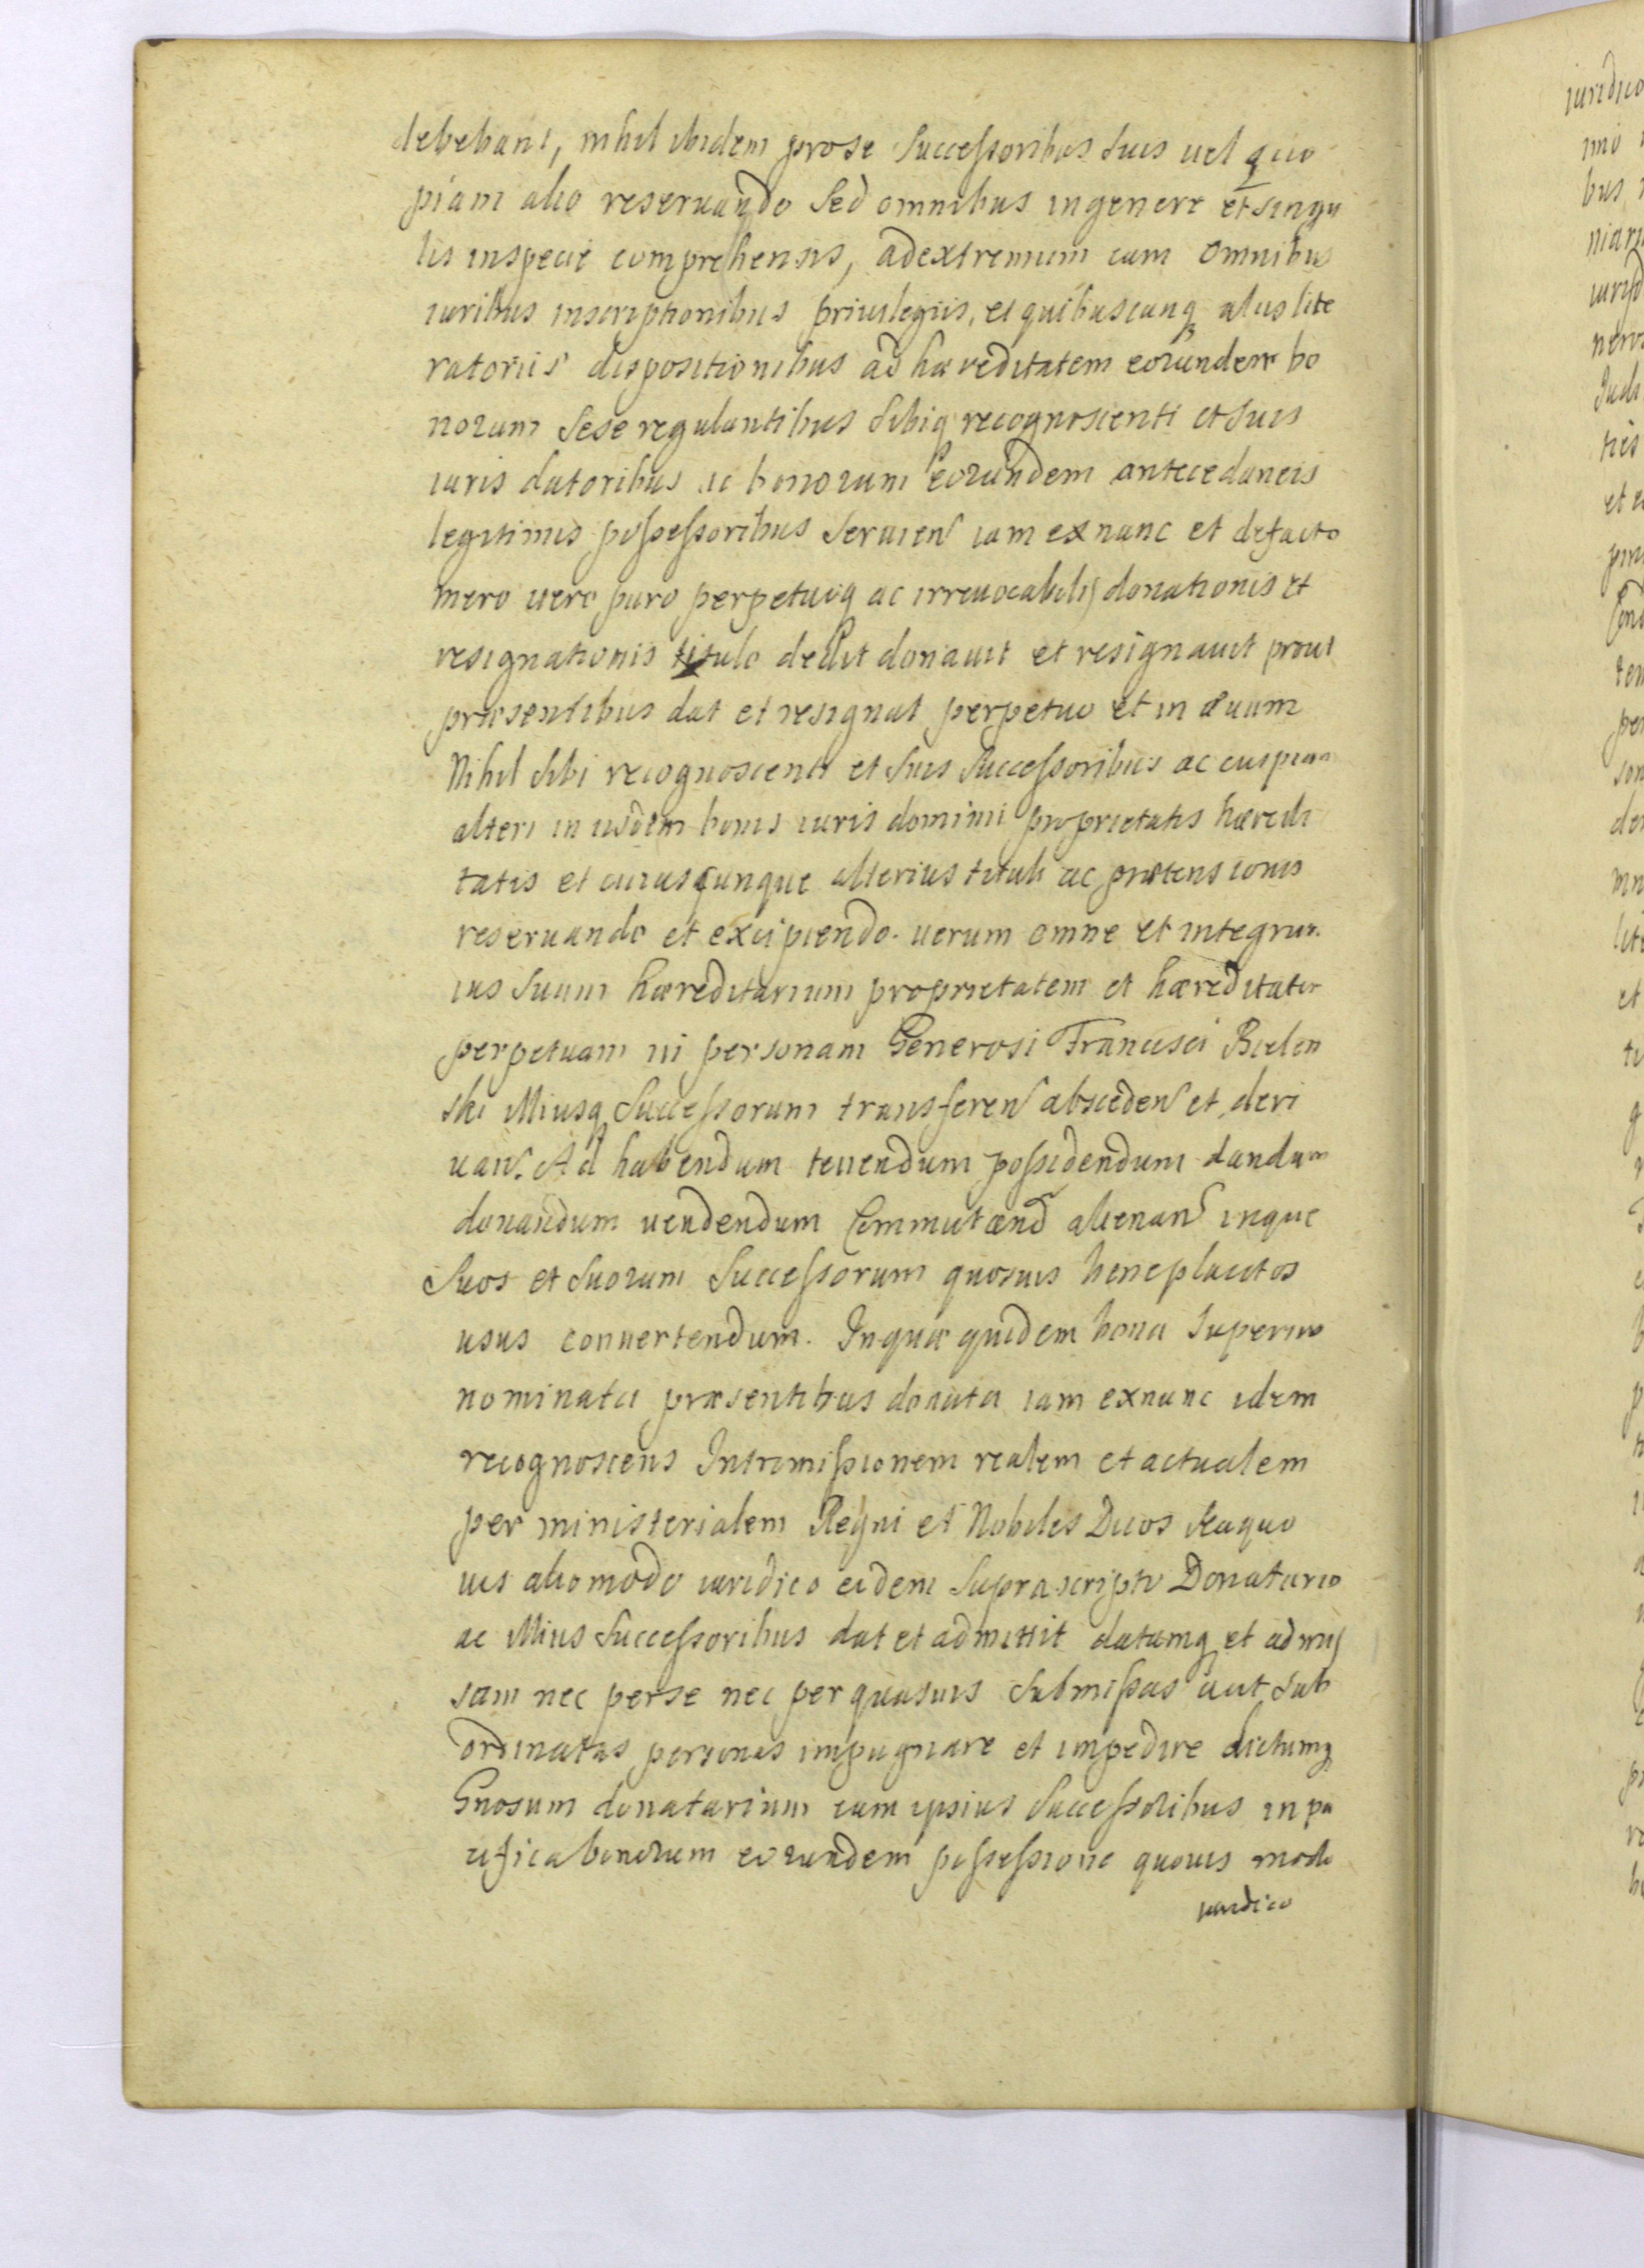 debebant, nihil ibidem prose Successoribus Suis vel quo
piam alio reseruando Sed omnibus ingenere et singu
lis inspecie comprehensis, adextremum cum omnibus
iuribus inscriptionibus priuilegiis, et quibuscunq aliis lite
ratoriis dispositionibus ad hæreditatem eorundem bo
norum Sese regulantibus Sibiq recognoscenti et Suis
iuris datoribus ac bonorum eorundem antecedaneis
legitimis possessoribus Seruien iam exnunc et defacto
mero uero puro perpetuoq ac irreuocabilis donationis et
resignationis titulo dedit donauit et resignauit prout
præsentibus dat et resignat perpetuo et in æuum
Nihil Sibi recognoscenti et Suis Successoribus ac cuipiam
alteri in iisdem bonis iuris dominii proprietatis hæredi
tatis et cuiuscunque alterius tituli ac prætensionis
reseruando et excipiendo. uerum omne et integrum
ius Suum hæreditarium proprietatem et hæreditatem
perpetuam in personam Generosi Francisci Bielin
ski Illiusq Successorum transferen absceden et deri
uan. Ad habendum tenendum possidendum dandum
donandum uendendum Commutand alienan inque
Suos et Suorum Successorum quosuis beneplacitos
usus conuertendum. Inquæ quidem bona Superius
nominata præsentibus donata iam exnunc idem
recognoscens Intromissionem realem et actualem
per ministerialem Regni et Nobiles Duos Seuquo
uis aliomodo iuridico eidem Suprascripto Donatario
ac Illius Successoribus dat et admittit datamq et admis
sam nec perse nec per quasuis Submissas aut Sub
ordinatas personas impugnare et impedire dictumq
Gnosum donatarium cum ipsius Successoribus in pa
cifica bonorum eorundem possessione quouis modo
iuridico